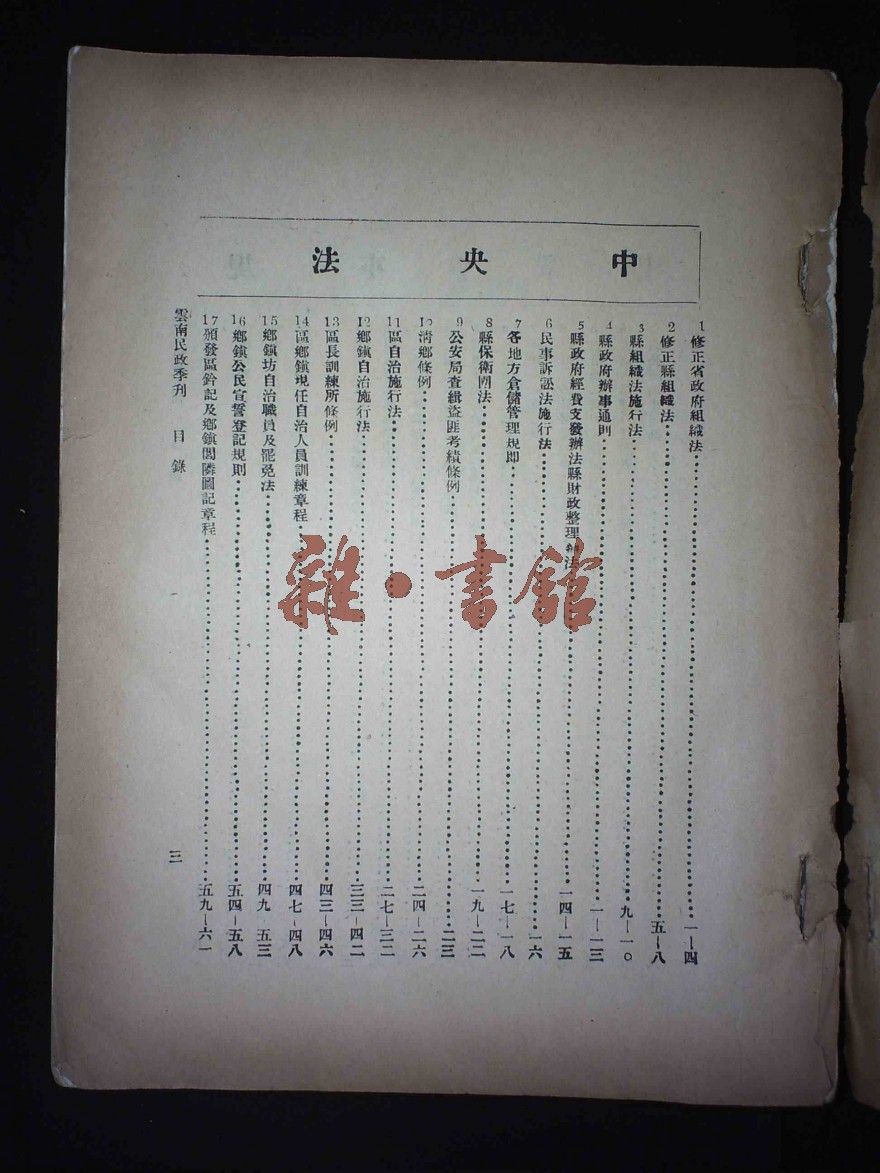 中央法
1 修正省政府組織法……一—四
2 修正縣組織法……五—八
3 縣組織法施行法……九—一〇
4 縣政府辦事通則……一—一三
5 縣政府經費支發辦法縣財政整理辦法……一四—一五
6 民事訴訟法施行法……一六
7 各地方倉儲管理規即……一七—一八
8 縣保衛團法……一九—二二
9 公安局查緝盜匪考績條例……二三
10 清鄉條例……二四—二六
11 區自治施行法……二七—三二
12 鄉鎮自治施行法……三三—四二
13 區長訓練所條例……四三—四六
14 區鄉鎮現任自治人員訓練章程……四七—四八
15 鄉鎮坊自治職員及罷免法……四九 五三
16 鄉鎮公民宣誓登記規則……五四—五八
17 頒發區鈐記及鄉鎮閭隣圖記章程……五九—六一
雲南民政季刊 目錄 三
雜·書館